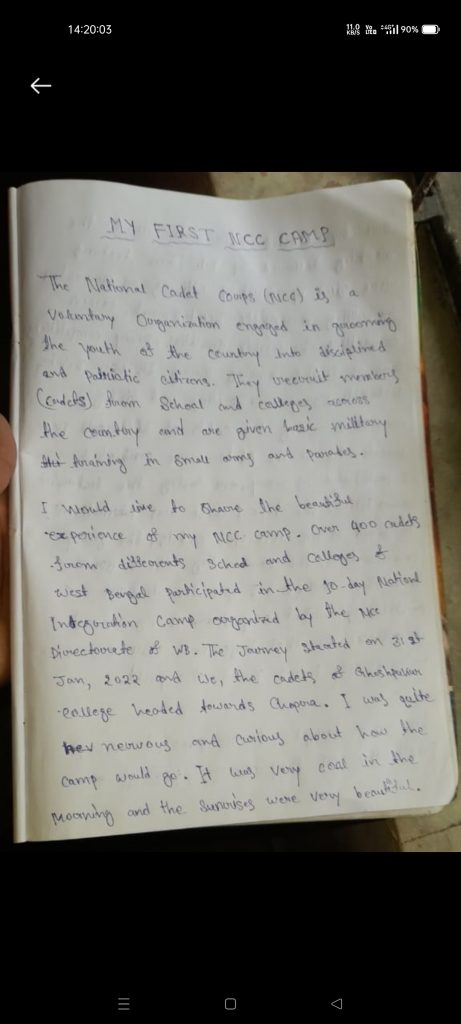 14:20:03
11.0 KB/S Vo LTE 4G 90%
MY FIRST NCC CAMP
The National Cadet Courps (NCC) is a
Voluntary Ourganization engaged in grooming
the youth of the country into disciplined
and patriotic citizens. They recruit members
(cadets) from School and colleges across
the country and are given basic military
training in small arms and parades.
I would like to Share the beautiful
experience of my NCC camp. Over 400 cadets
from differents School and Colleges of
West Bengal participated in the 10-day National
Integration Camp organized by the NCC
Directorate of WB. The Journey Started on 31st
Jan, 2022 and we, the cadets of Ghoshpukur
college headed towards Chopra. I was quite
nervous and curious about how the
camp would go. It was very cool in the
Morning and the Sunrises were very beautiful.